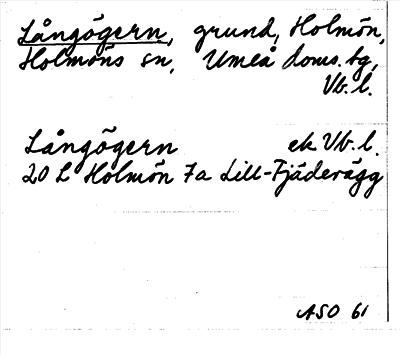 Långögern, grund, Holmön,
Holmöns sn, Umeå doms.bg,
Vb.l.
Långögern ek Vb.l.
20 L Holmön 7a Lill-Fjäderägg
ASO 61